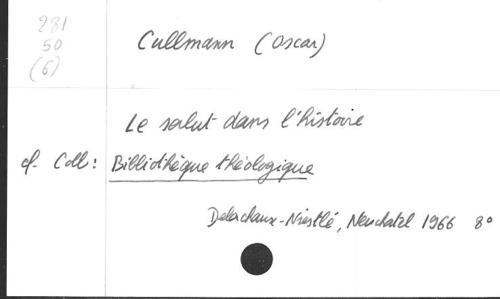 281
50
(6)
Cullmann (Oscar)
Le salut dans l'histoire
cf. Coll: Bibliothèque théologique
Delachaux-Niestlé, Neuchatel 1966 8°